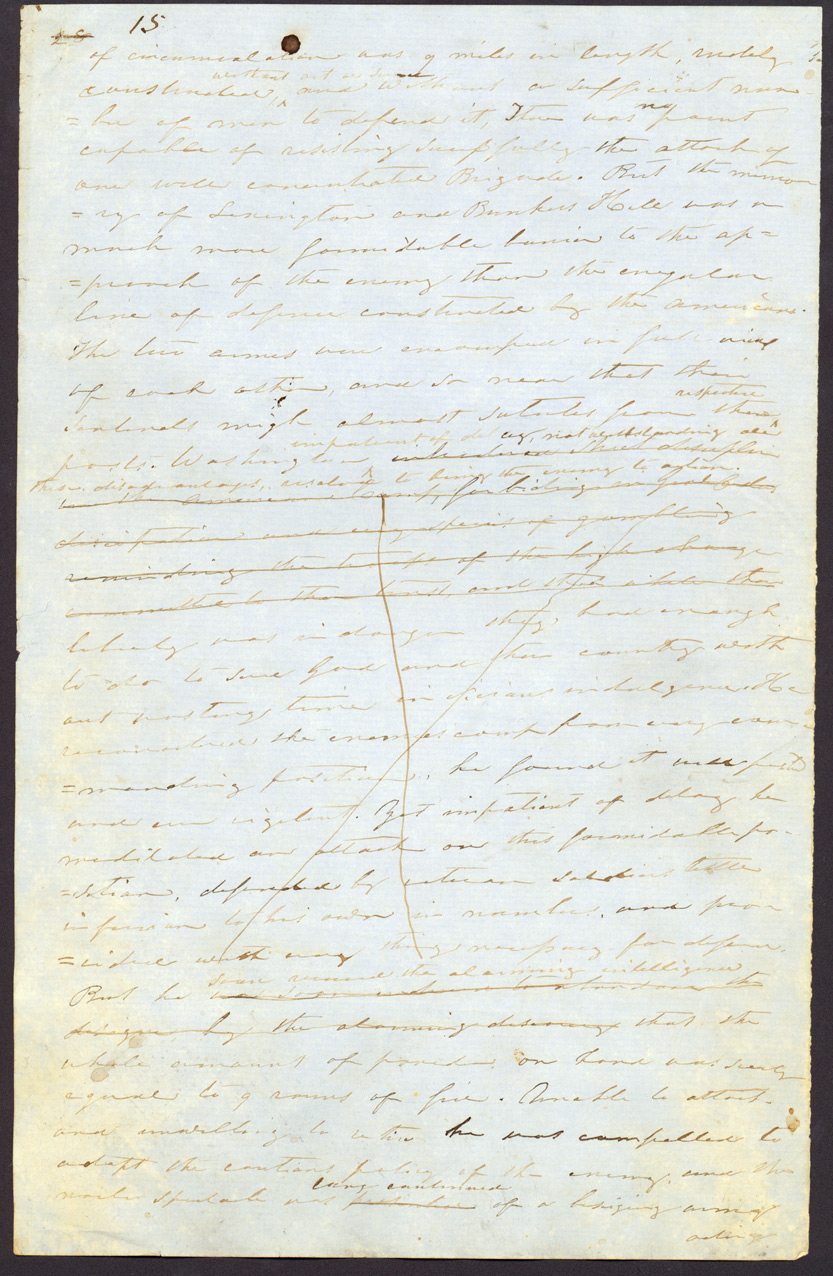 28 15
of circumvalation was 9 miles in length, rudely
without out a
constructed, and without a sufficient num-
=ber of men to defend it, There was no point
capable of resisting successfully the attack of
one well concentrated Brigade. But the memo
=ry of Lexington and Bunkers Hill was a
much more formidable barrier to the ap=
=proach of the enemy than the irregular
line of defence constructed by the Americans.
The two armies were encamped in full view
of each other, and so near that their
respective
Sentinels might almost salutes from their
impatient of delay, notwithstanding all
posts. Washington introduced strict discipline
these disadvantages, resolved to bring the enemy to action.
in the American Camp, forbiding
dissipation and every species of gambling
reminding the troops of the high charge
committed to their trust, and that while their
liberty was in danger they had enough
to do to serve God and their country with
out wasting time in vicious indulgence. He
reconnoitred the enemies camp from every com-
=manding position, he found it
and vigilant. Yet impatient of delay he
meditated an attack on this formidable po-
=sition, defended by veteran soldiers little
inferior to his own in number, and prov
=vided with every thing necessary for defence.
soon received the alarming intelligence
But he was soon to abandon the
design by the alarming discovery that the
whole amount of powder on hand was
equal to 9 rounds of fire. Unable to attack
and unwilling to retire he was compelled to
adopt the cautious policy of the enemy, and the
long continued
spectacle was of a besieging army
acting